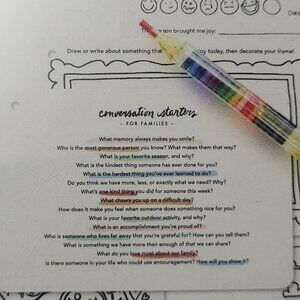 Date
This person brought me joy:
Draw or write about something that joy today, then decorate your frame!
conversation starters
- FOR FAMILIES -
What memory always makes you smile?
Who is the most generous person you know? What makes them that way?
What is your favorite season, and why?
What is the kindest thing someone has ever done for you?
What is the hardest thing you've ever learned to do?
Do you think we have more, less, or exactly what we need? Why?
What's one kind thing you did for someone this week?
What cheers you up on a difficult day?
How does it make you feel when someone does something nice for you?
What is your favorite outdoor activity, and why?
What is an accomplishment you're proud of?
Who is someone who lives far away that you're grateful for? How can you tell them?
What is something we have more than enough of that we can share?
What do you love most about our family?
Is there someone in your life who could use encouragement? How will you show it?